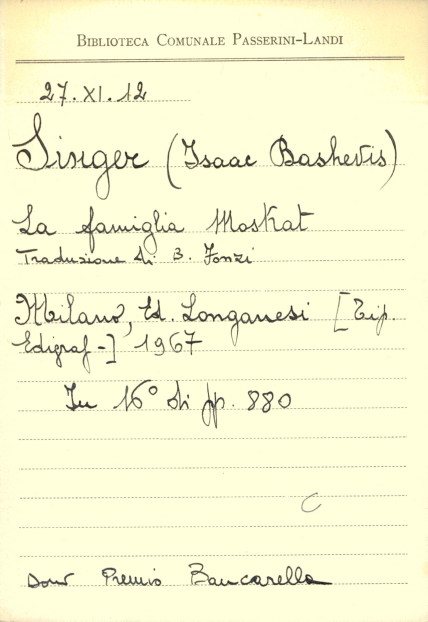 BIBLIOTECA COMUNALE PASSERINI-LANDI
27.XI.12
Singer (Isaac Bashevis)
La famiglia Moskat
Traduzione di B. Fonzi
Milano, Ed. Longanesi [Tip.
Edigraf-] 1967
In 16° di pp. 880
C
Dono Premio Bancarella